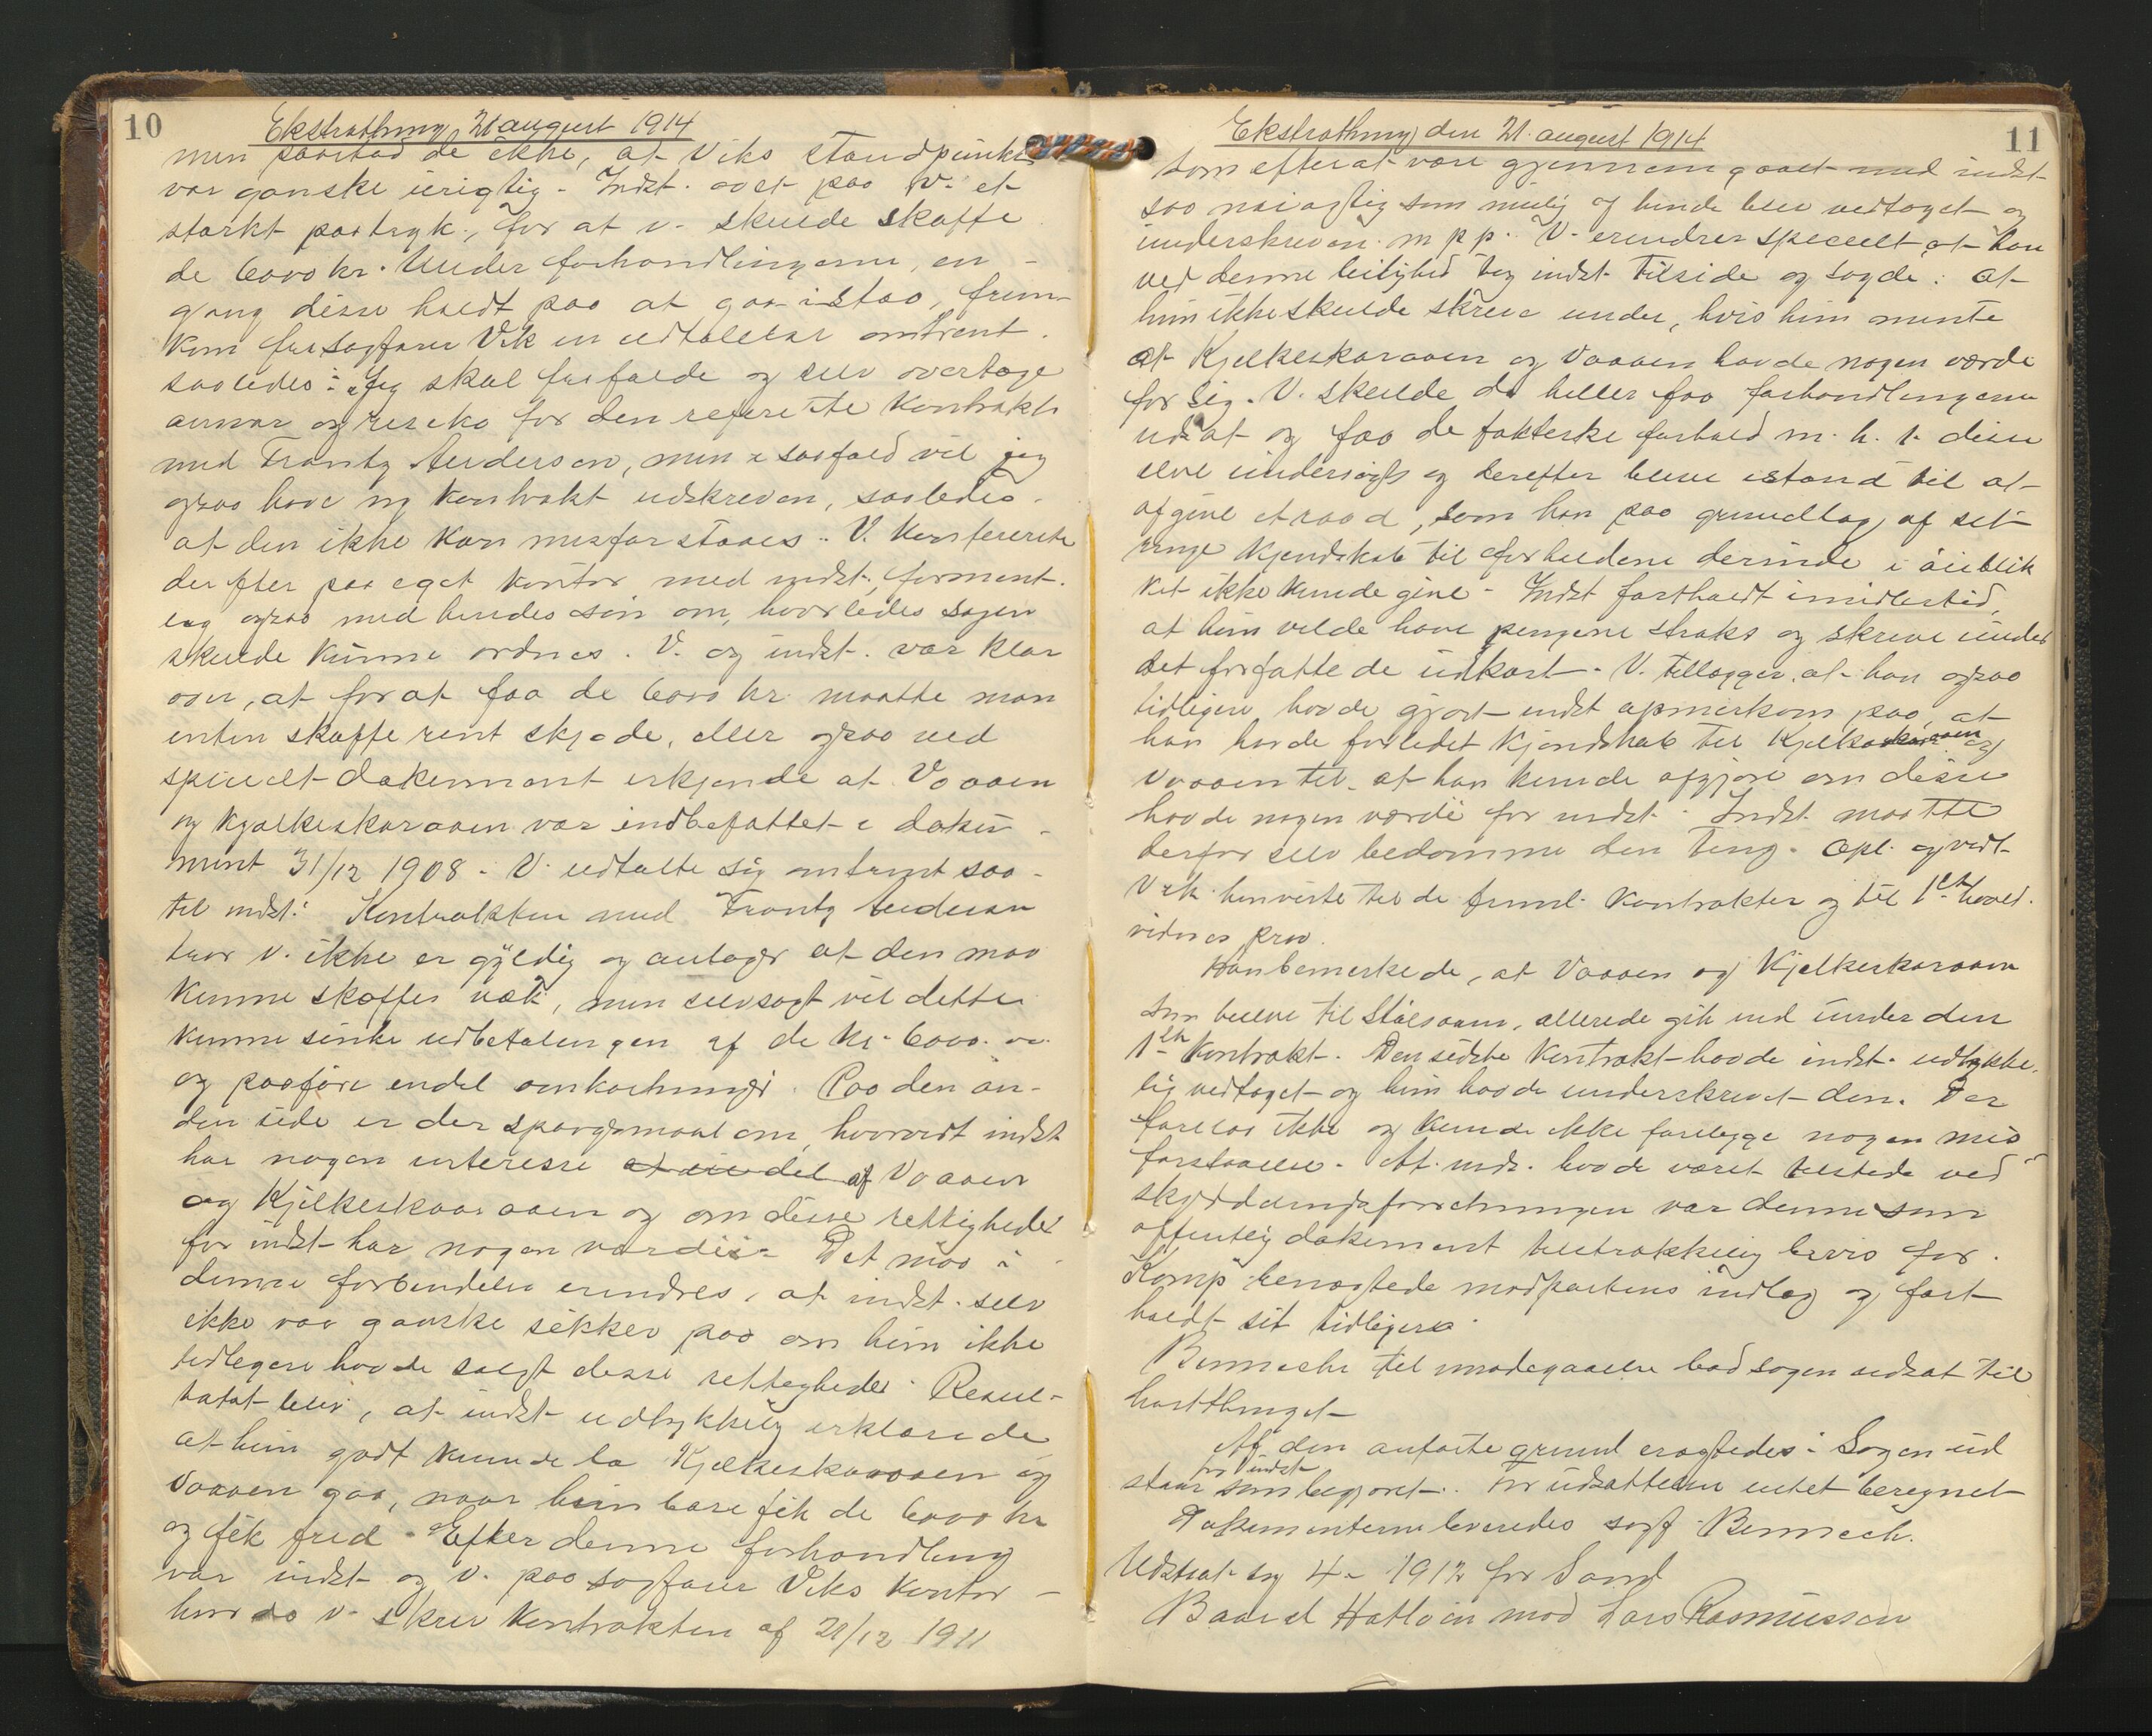 10
Ekstrathing 21 august 1914
men paastod de ikke, at Viks standpunkt
var ganske urigtig. Indst. øvet paa V. et
stærkt paatryk, for at v. skulde skaffe
de 6000 kr. Under forhandlingerne, en-
gang disse holdt paa at gaa istaa, frem-
kom fra sagfører Vik en udtalelse omtrent
saaledes: "Jeg skal frafalde og selv overtage
ansvar og risiko for den refererte Kontrakt
med Frantz Andersen, men i saafald vil jeg
ogsaa have ny Kontrakt udskreven, saaledes
at den ikke kan misforstaaes. V. konfererte
derefter paa eget kontor med indst. forment-
lig ogsaa med hendes søn om, hvorledes sagen
skulde kunne ordnes. V. og indst. var klar
over, at for at faa de 6000 kr. maatte man
enten skaffe rent skjøde, eller ogsaa ved
specielt dokument erkjende at Vaaaen
og Kjølkeskaraaen var indbefattet i doku-
ment 31/12 1908. V. udtalte sig omtrent saa-
til indst: Kontrakten med Frantz Andersen
tror v. ikke er gyldig og antager at den maa
kunne skaffes væk, men selvsagt vil dette
kunne sinke udbetalingen af de kr. 6000.00
og paaføre endel omkostninger. Paa den an-
den side er der spørgsmaal om, hvorvidt indst
har nogen interesse af Vaaaen
og Kjelkeskaaraaen og om disse rettigheder
for indst har nogen værdi. Det maa i
denne forbindelse erindres, at indst. selv
ikke var ganske sikker paa om hun ikke
tidligere havde solgt disse rettigheder. Resul-
tatet blev, at indst udtrykkelig erklærede
at hun godt kunde la Kjelkeskaraaen og
Vaaaen gaa, naar hun bare fik de 6000 kr
og fik fred. Efter denne forhandling
var indst og v. paa sagfører Viks kontor
hvor da v. skrev Kontrakten af 21/12 1911
11
Ekstrathing den 21. august 1914
som efter at være gjennemgaaet med indst
saa nøiagtig som mulig af hende blev vedtaget og
underskreven m. p. p. V. erindrer specielt, at han
ved denne leilighed tog indst tilside og sagde: at
hun ikke skulde skrive under, hvis hun mente
at Kjelkeskaraaen og Vaaaen havde nogen værdi
for sig. V. skulde da heller faa forhandlingerne
udsat og faa de faktiske forhold m. h. t. disse
elve undersøgt og derefter blive istand til at
afgive et raad, som han paa grundlag af sit
ringe kjendskab til forholdene derinde i øieblik
ket ikke kunde give. Indst fastholdt imidlertid,
at hun vilde have pengene straks og skrive under
det forfattede udkast. V. tillægger, at han ogsaa
tidligere havde gjort indst opmerksom paa, at
han havde forlidet kjendskab til Kjelkeskaraaen og
Vaaaen til at han kunde afgjøre om disse
havde nogen værdi for indst. Indst. maatte
derfor selv bedømme den ting. Opl. og vedt.
Vik henviste til de freml. Kontrakter og til 1ste hoved-
vidnes prov.
Han bemerkede, at Vaaaen og Kjelkeskaraaen
som elve til Stalsaaen, allerede gik ind under den
1ste Kontrakt. Den sidste Kontrakt havde indst. udtrykke-
lig vedtaget og hun havde underskrevet den. Der
forelaa ikke og kunde ikke forelægge nogen mis
forstaaelse. At inds. havde været tilstede ved
skyddelingsforretningen var denne som
offentlig dokument tilstrækkelig bevis for.
Komp benegtede modpartens indlæg og fast
holdt sit tidligere.
Benneche til imødegaaelse bad sagen udsat til
høstthinget
Af den anførte grund eragtedes: Sagen ud
staar som begjæret. for udsættelsen intet beregnet
for indst
Dokumenterne leveredes sagf. Bennech.
Udsat sag 4 - 1912 for Sand
Baard Hatløin mod Lars Rasmussen